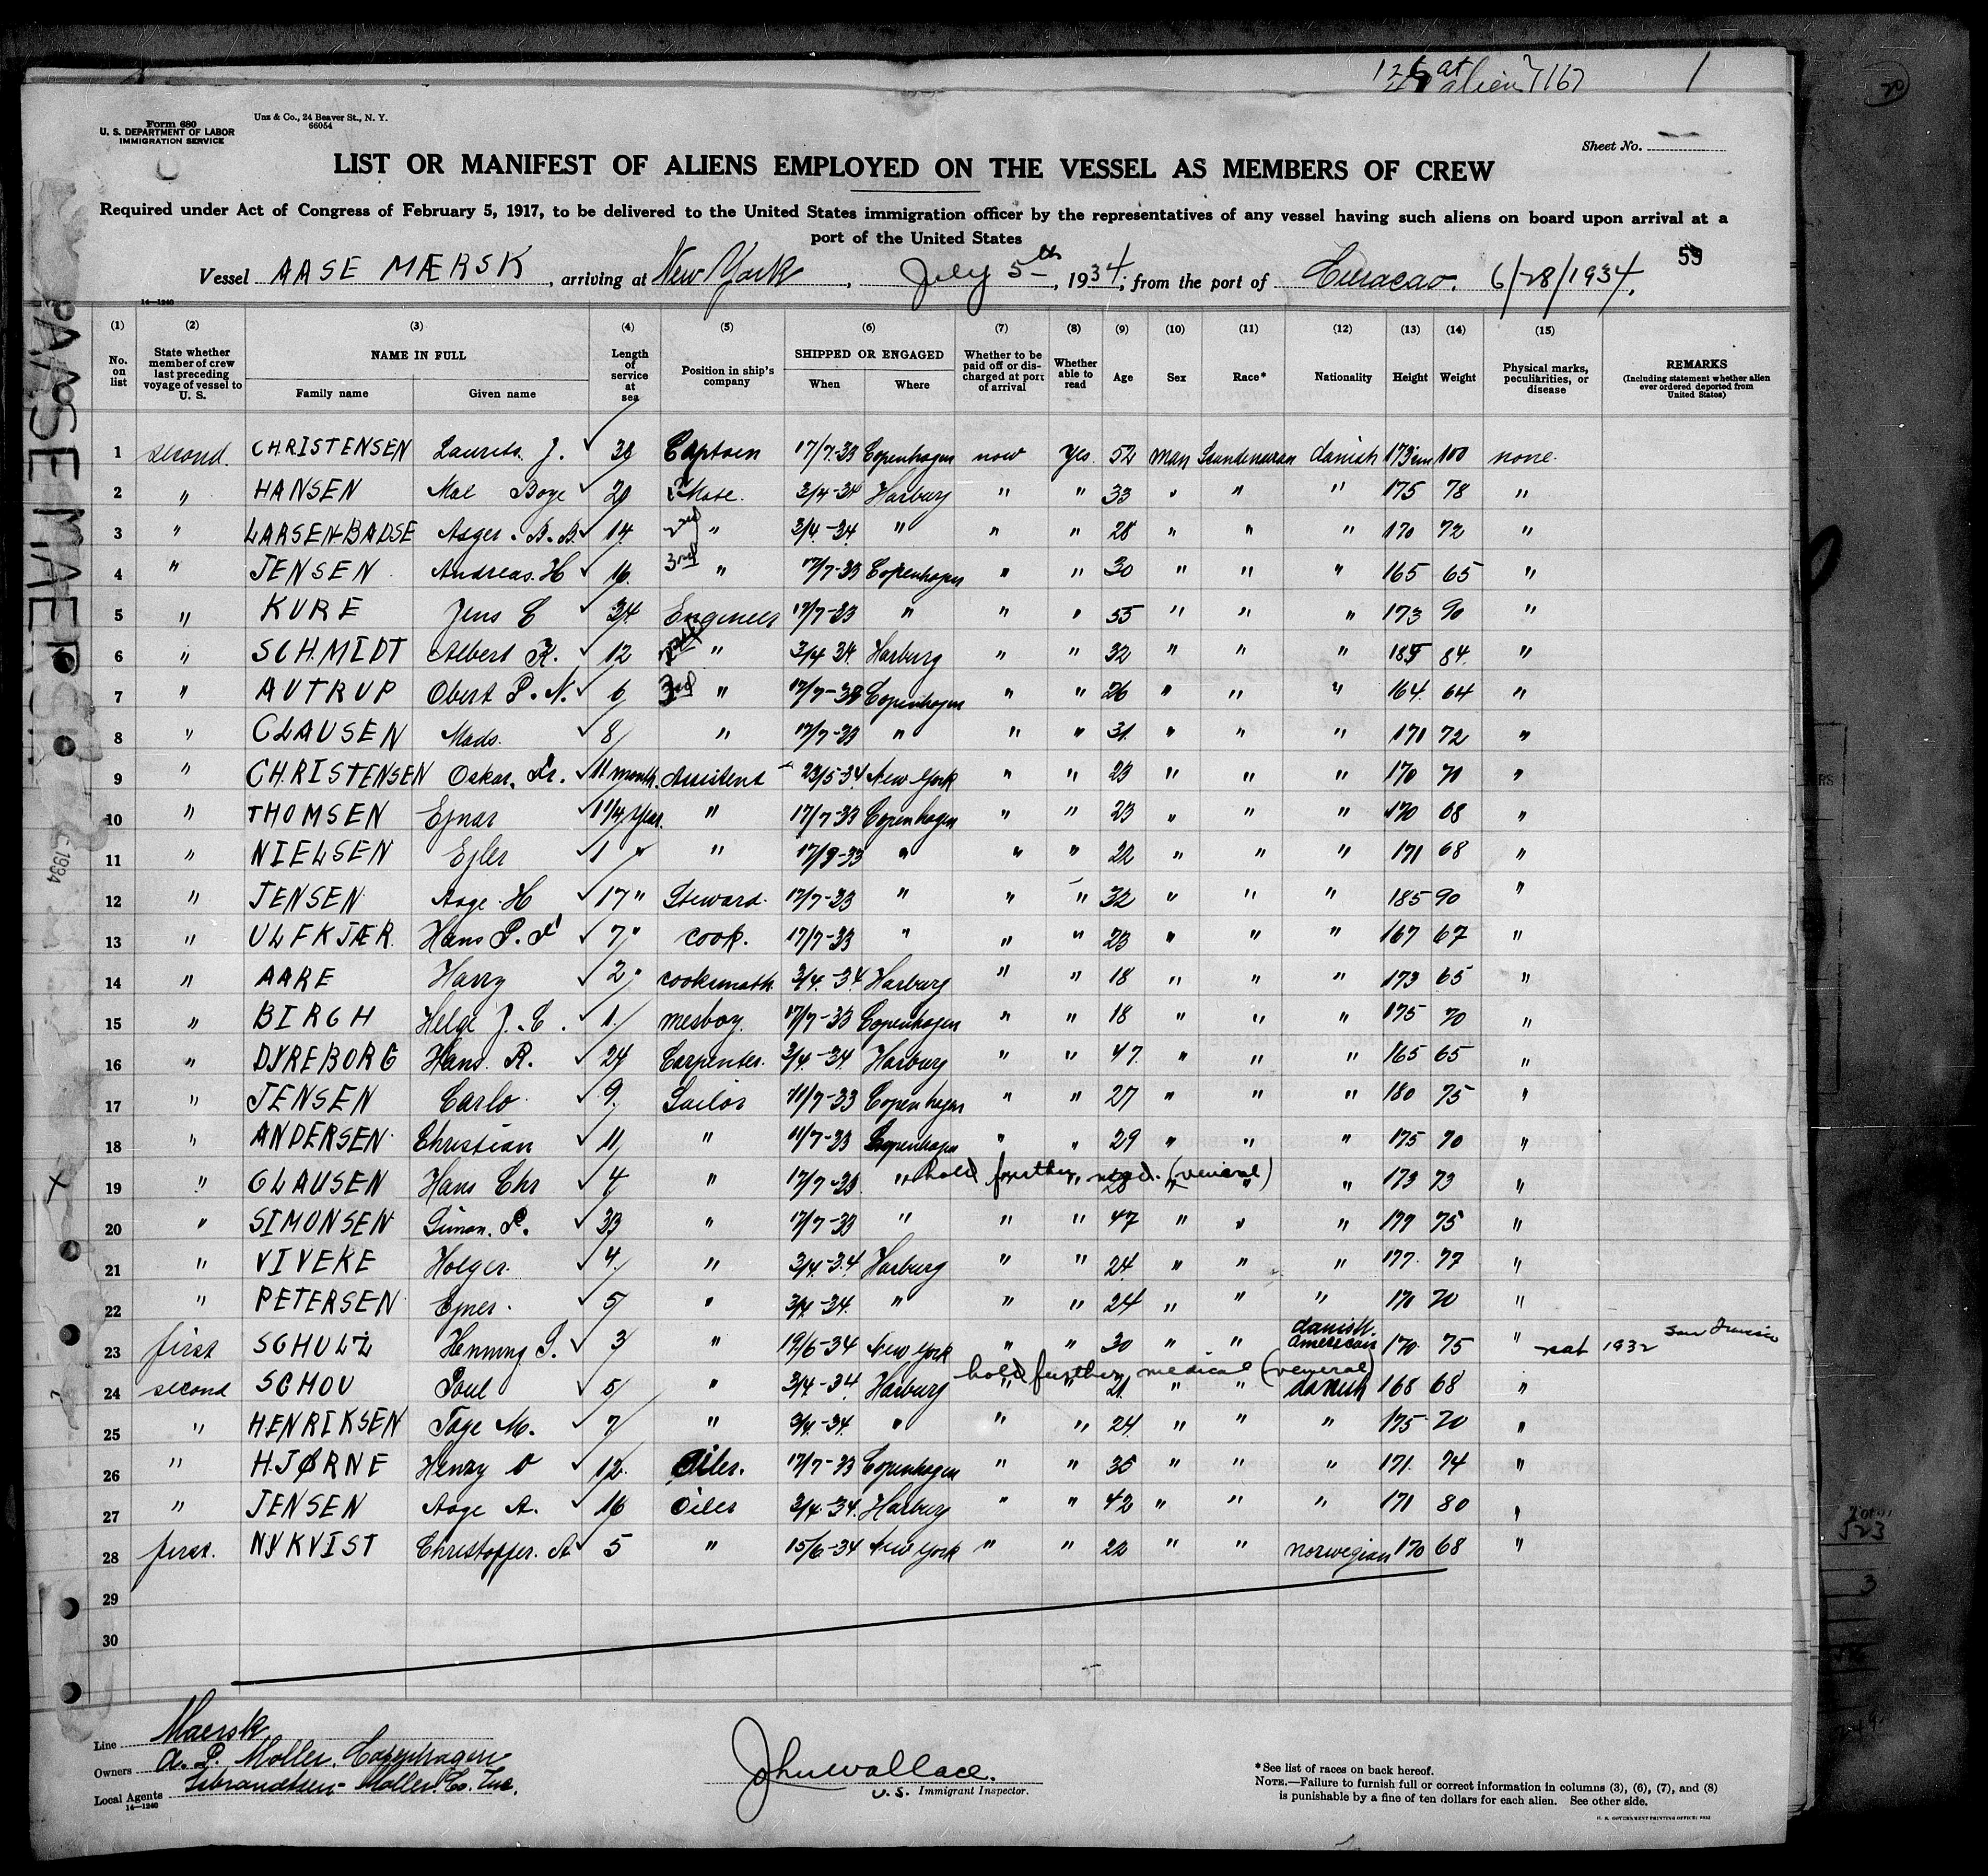 1
Form 680
U. S. DEPARTMENT OF LABOR
IMMIGRATION SERVICE
Unz & Co., 24 Beaver St., N. Y.
66054
Sheet No.
LIST OR MANIFEST OF ALIENS EMPLOYED ON THE VESSEL AS MEMBERS OF CREW
Required under Act of Congress of February 5, 1917, to be delivered to the United States immigration officer by the representatives of any vessel having such aliens on board upon arrival at a
port of the United States
59
Vessel AASE MÆRSK, arriving at New York, July 5th, 1934, from the port of Curacao. 6/28/1934.
14—1240
(1) (2) (3) (4) (5) (6) (7) (8) (9) (10) (11) (12) (13) (14) (15)
No. on list State whether member of crew last preceding voyage of vessel to U. S. NAME IN FULL Family name Given name Length of service at sea Position in ship's company SHIPPED OR ENGAGED When Where Whether to be paid off or discharged at port of arrival Whether able to read Age Sex Race* Nationality Height Weight Physical marks, peculiarities, or disease REMARKS (Including statement whether alien ever ordered deported from United States)
1 second. CHRISTENSEN Laurits. J. ✓ 38 Captain 17/7-33 Copenhagen now Yes. 52 man Scandinavian danish 173cm 100 none.
2 " HANSEN Mal Boye ✓ 20 Mate. 3/4-34 Harburg " " 33 " " " 175 78 "
3 " LARSEN-BADSE Asger. B.B. ✓ 14 2nd " 3/4-34 " " " 28 " " " 170 72 "
4 " JENSEN Andreas. H ✓ 16 3rd " 17/7-33 Copenhagen " " 30 " " " 165 65 "
5 " KURE Jens C ✓ 34 Engineer 17/7-33 " " " 55 " " " 173 90 "
6 " SCHMIDT Albert K. ✓ 12 2nd " 3/4 34 Harburg " " 32 " " " 185 84 "
7 " AUTRUP Obert P. N. ✓ 6 3rd " 17/7-33 Copenhagen " " 26 " " " 164 64 "
8 " CLAUSEN Mads. ✓ 8 " 17/7-33 " " " 31 " " " 171 72 "
9 " CHRISTENSEN Oskar. Fr. ✓ 11 month. Assistent 23/5-34 New York " " 23 " " " 170 70 "
10 " THOMSEN Ejnar ✓ 1 1/4 year. " 17/7-33 Copenhagen " " 23 " " " 170 68 "
11 " NIELSEN Ejler ✓ 1 " " 17/9-33 " " " 22 " " " 171 68 "
12 " JENSEN Aage. H ✓ 17 " Steward. 17/7-33 " " " 32 " " " 185 90 "
13 " ULFKJÆR Hans P. F ✓ 7 " cook. 17/7-33 " " " 23 " " " 167 67 "
14 " AARE Harry ✓ 2 " cooksmath. 3/4-34 Harburg " " 18 " " " 173 65 "
15 " BIRCH Helge J. C. ✓ 1 mesboy. 17/7-33 Copenhagen " " 18 " " " 175 70 "
16 " DYREBORG Hans. R. ✓ 24 Carpenter. 3/4-34 Harburg " " 47 " " " 165 65 "
17 " JENSEN Carlo ✓ 9 Sailor 11/7-33 Copenhagen " " 27 " " " 180 75 "
18 " ANDERSEN Christian ✓ 11 " 11/7-33 Copenhagen " " 29 " " " 175 70 "
X 19 " CLAUSEN Hans Chr ✓ 4 " 17/7-33 " hold further med. (veneral) " 173 73 "
20 " SIMONSEN Simon. P. ✓ 33 " 17/7-33 " " " 47 " " " 177 75 "
21 " VIVEKE Holger ✓ 4 " 3/4-34 Harburg " " 24 " " " 177 77 "
22 " PETERSEN Ejner. ✓ 5 " 3/4-34 " " " 24 " " " 170 70 "
23 first SCHULZ Henning S. ✓ 3 " 19/6-34 New York " " 30 " " danish. american 170 75 " nat 1932 San Francisco
24 second SCHOU Poul ✓ 5 " 3/4-34 Harburg hold further medical (veneral) " " 21 " " danish 168 68 "
25 " HENRIKSEN Tage M. ✓ 7 " 3/4-34 " " " 24 " " " 175 70 "
26 " HJØRNE Henry O ✓ 12 Oiler. 17/7-33 Copenhagen " " 35 " " " 171 74 "
27 " JENSEN Aage A. ✓ 16 Oiler 3/4-34 Harburg " " 42 " " " 171 80 "
28 first. NYKVIST Christoffer. A ✓ 5 " 15/6-34 New York " " 22 " " norwegian 170 68 "
29
30
Line Maersk
Owners A. P. Moller. Copenhagen
Local Agents Isbrandtsen-Moller Co. Inc.
14—1240
John Wallace.
U. S. Immigrant Inspector.
*See list of races on back hereof.
NOTE.—Failure to furnish full or correct information in columns (3), (6), (7), and (8)
is punishable by a fine of ten dollars for each alien. See other side.
U. S. GOVERNMENT PRINTING OFFICE: 1932